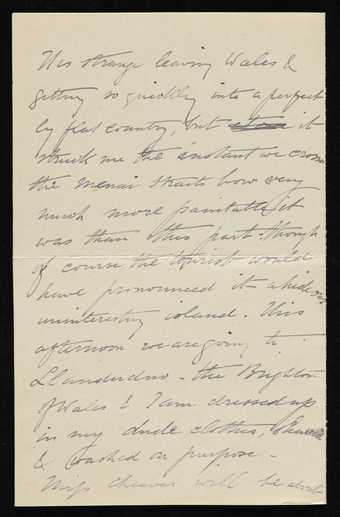 Tis strange leaving Wales &
getting so quickly into a perfect
ly flat country, but it
struck me the instant we cross
the Menai Straits how very
much more paintable it
was than this part. though
of course the tourist would
have pronounced it a hideous
uninteresting island. This
afternoon we are going to
Llandudno - the Brighton
of Wales & I am dressed up
in my dude clothes,
& washed on purpose -
Miss Cheever will be about